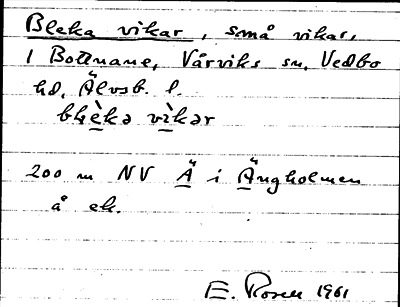 Bleka vikar, små vikar,
i Bottnane, Vårviks sn, Vedbo
hd, Älvsb. l.
blèka vìkər
200 m NV Ä i Ängholmen
å ek.
E. Rosen 1961